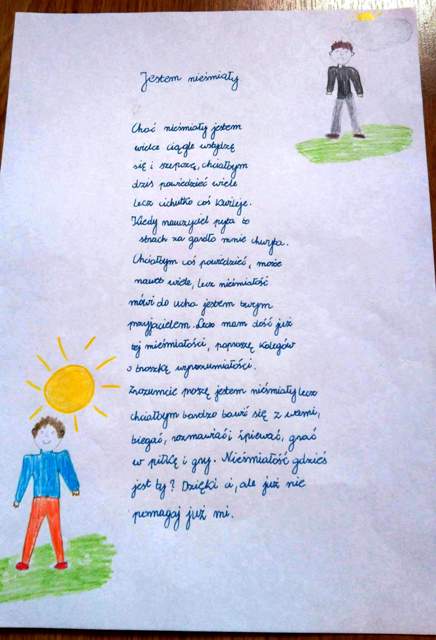 Jestem nieśmiały
Choć nieśmiały jestem
wielce ciągle wstydzę
się i szepczę, chciałbym
dziś powiedzieć wiele
lecz cichutko coś kwileje.
Kiedy nauczyciel pyta to
strach za gardło mnie chwyta.
Chciałbym coś powiedzieć, może
nawet wiele, lecz nieśmiałość
mówi do ucha jestem twym
przyjacielem. Lecz mam dość już
tej nieśmiałości, poproszę kolegów
o troszkę wyrozumiałości.
Zrozumcie proszę jestem nieśmiały lecz
chciałbym bardzo bawić się z wami,
biegać, rozmawiać i śpiewać, grać
w piłkę i gry. Nieśmiałość gdzieś
jest ty? Dzięki ci, ale już nie
pomagaj już mi.